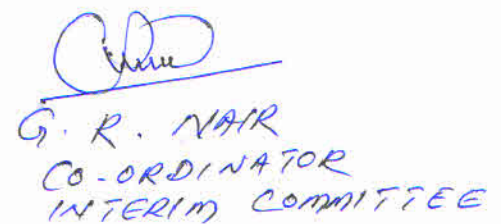 G. R. NAIR
CO-ORDINATOR
INTERIM COMMITTEE